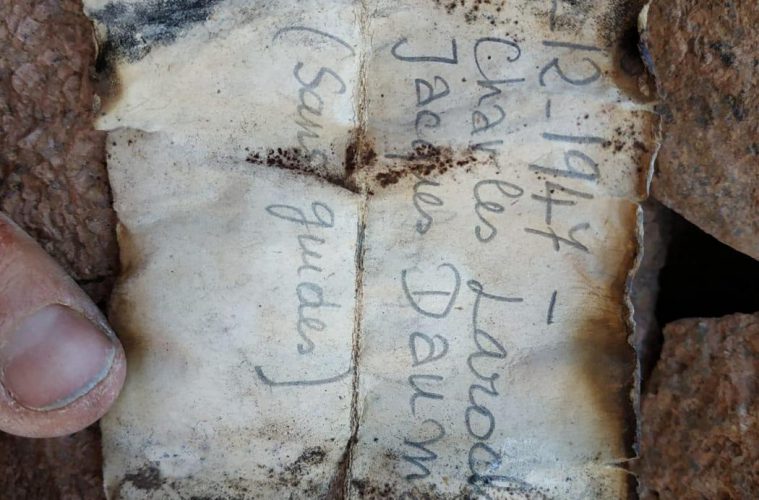 -12-1947 -
Charles Laroch
Jacques Daum
(Sans guides)